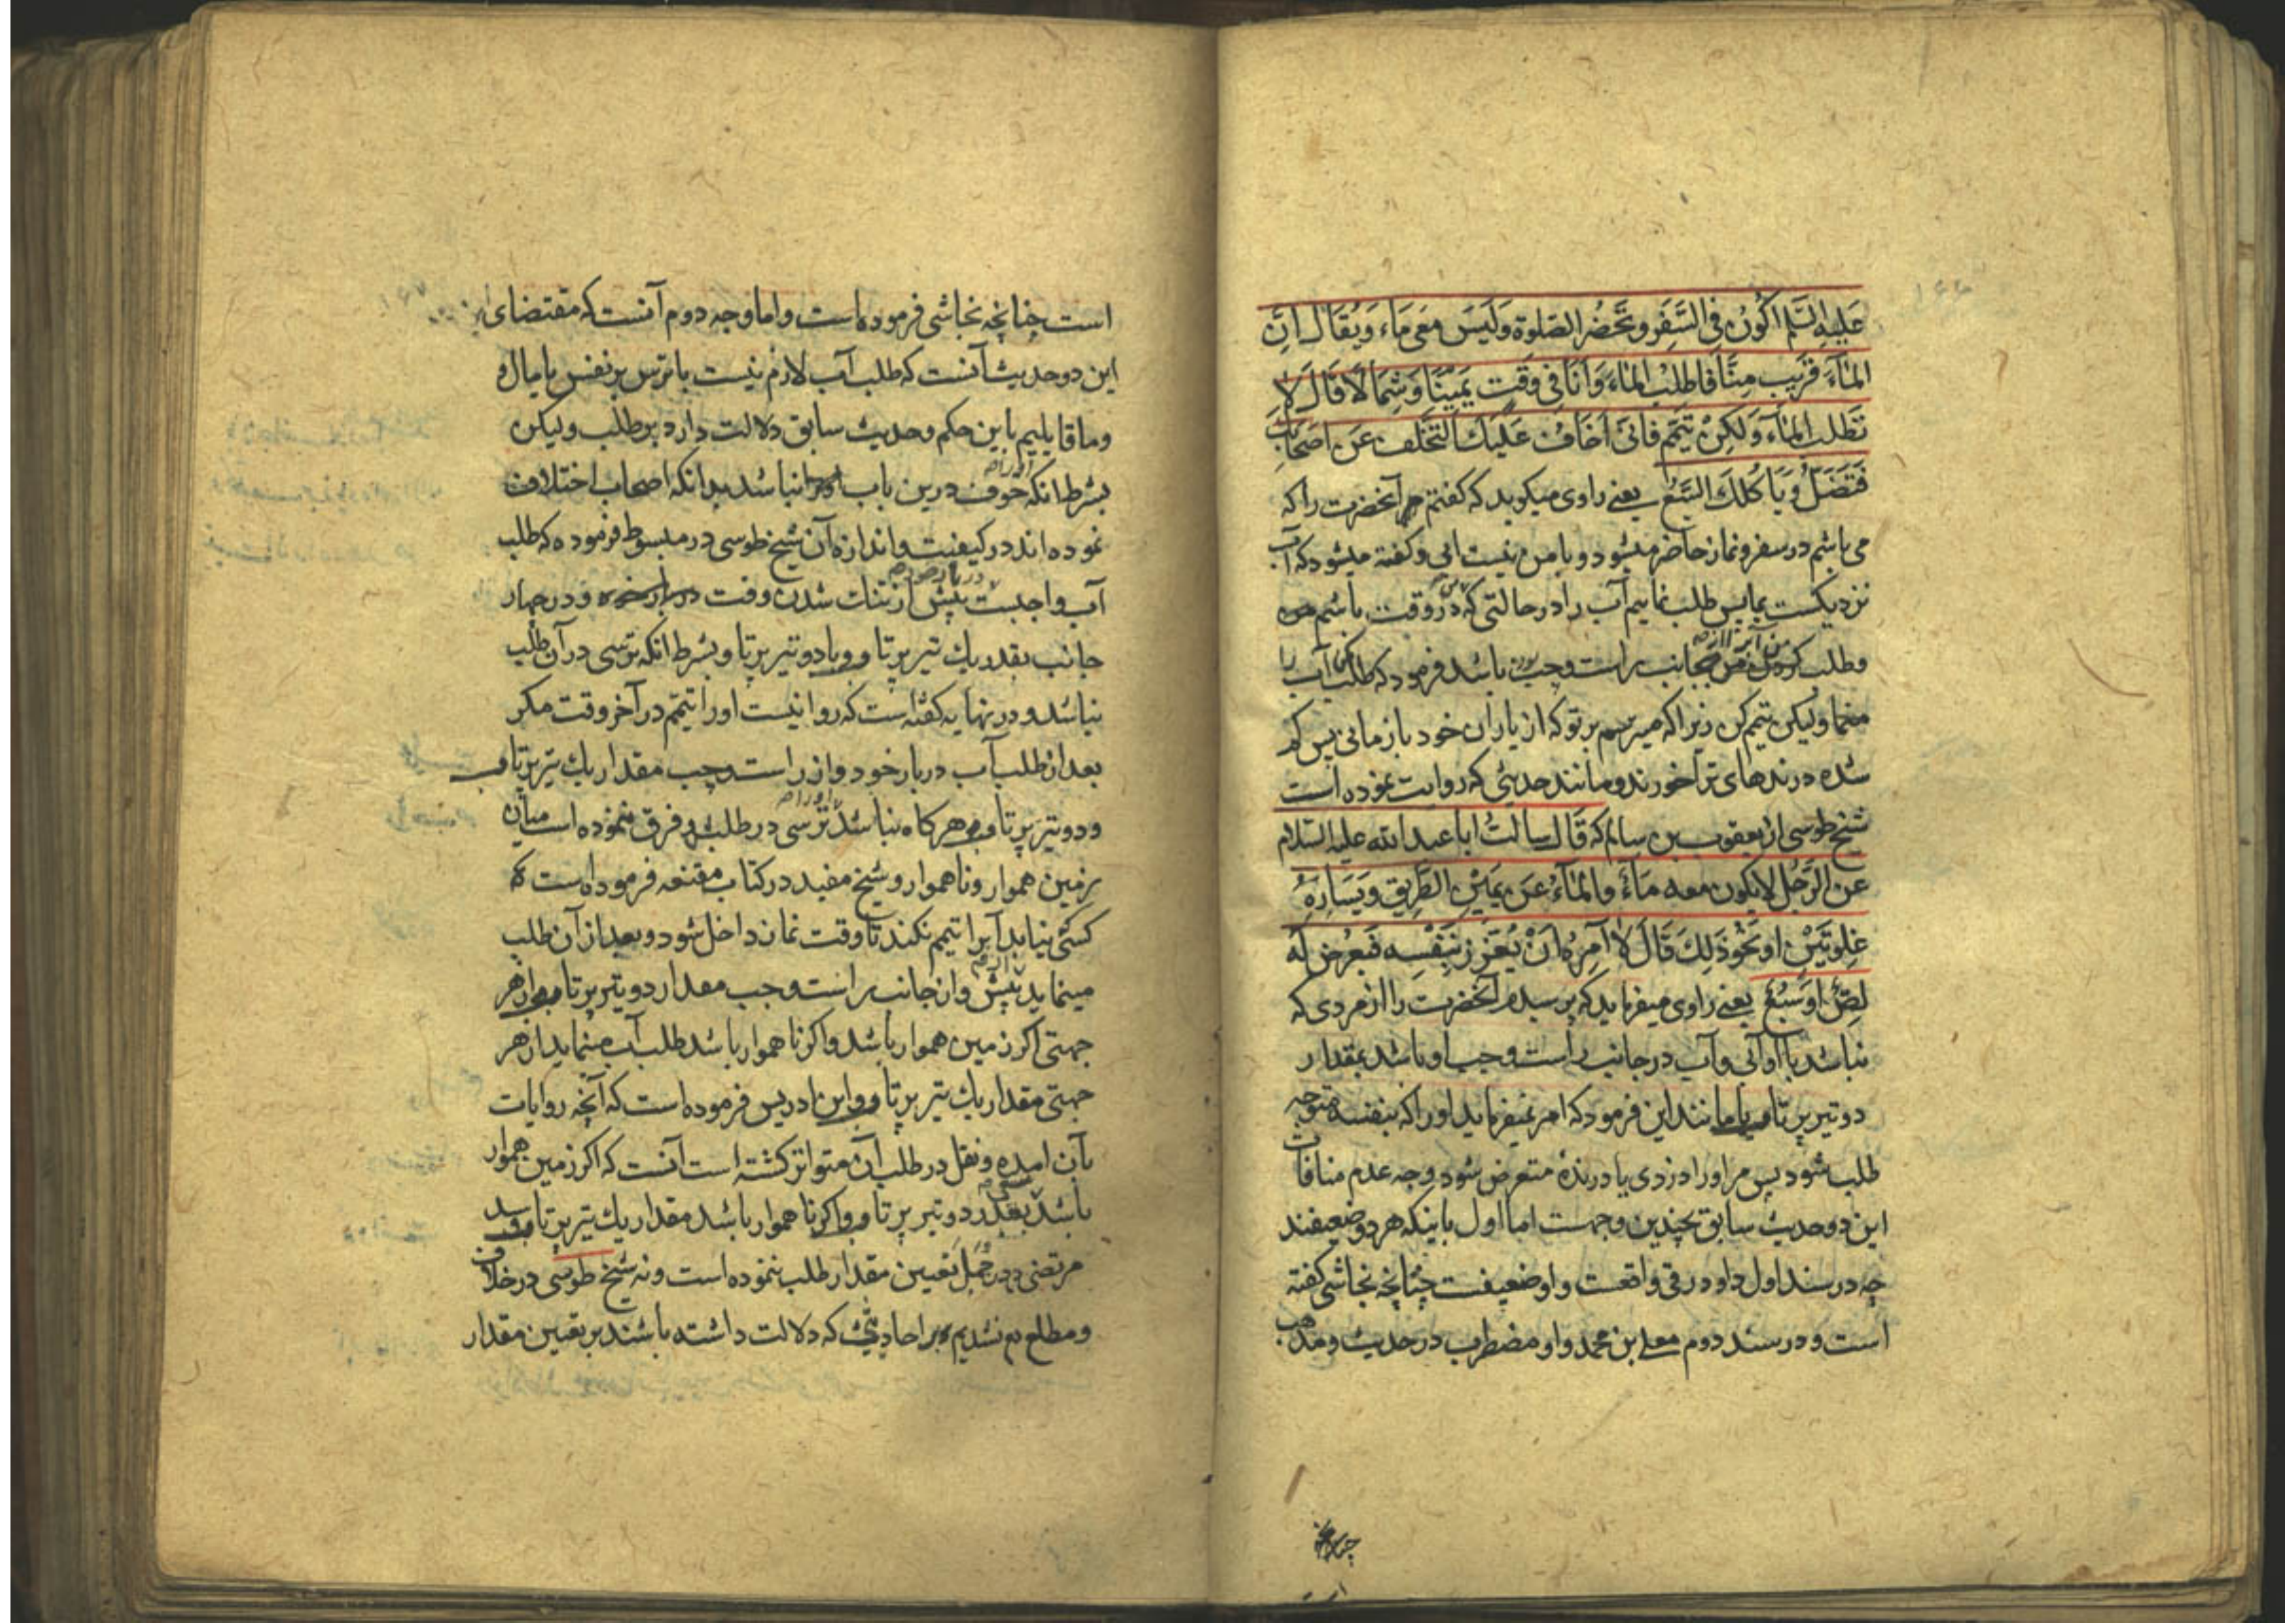 عَلَیهِ السَّلم اَکُونُ فِی السَّفَرِ وَتَحْضُرُ الصَّلوة وَلَیسَ مَعِی مَاء وَیُقَالُ اِنَّ
المَآءَ قَرَیب مِنَّا فَاَطلُبُ المَاءَ وَاَنَا فِی وَقْتٍ یَمِیْنًا وَشِمَالًا قَالَ لَا
تَطْلُب المَآءَ وَلَکِنْ تَیَمَّم فَاِنِّی اَخَافُ عَلَیْكَ التَّخَلُّفَ عَنْ اَصْحَابِكَ
فَتَضِلُّ وَیَاکُلَكَ السَّبُعُ یعنی راوی میکوید که کفتم مر آنحضرت را که
می باشم در سفر و نماز حاضر میشود و با من نیست آبی و کفته میشود که آب
نزدیکست بما پس طلب نماییم آب را در حالتی که در وقت باشم
وطلب جانب راست وچپ باشد فرمود که طلب آب را
منما ولیکن تیمم کن زیرا که میترسم بر تو که از یاران خود باز مانی پس کم
شده درندهای ترا خورند ومانند حدیثی که روایت نموده است
شیخ طوسی از یعقوب بن سالم که قَالَ سالتُ ابا عبد الله علیه السّلام
عَنِ الرَّجُلِ لا یکون معه مَاءٌ والمَاءُ عَنْ یَمِیْنِ الطَّرِیقِ وَیَسَارِهِ
غلوَتَیْنِ اَو نَحْوَ ذَلِكَ قَالَ لا آمرُهُ اَنْ یُغَرِّرَ بِنَفْسِه فَیَعْرُض لَه
لِصٌّ اَو سَبُعٌ یعنی راوی میفرماید که پرسیدم آنحضرت را از مردی که
نباشد با او آبی وآب در جانب راست وچپ او باشد بمقدار
دو تیر پرتاب یا مانند این فرمود که امر نمیفرماید او را که بنفسه متوجه
طلب شود پس مر او را دزدی یا درندهٔ متعرض شود وجه عدم منافات
این دو حدیث سابق بچندین وجهست اما اول باینکه هر دو ضعیفند
چه در سند اول داود رقی واقعست واو ضعیفست چنانچه نجاشی کفته
است ودر سند دوم معلی بن محمد واو مضطرب در حدیث ومذهب
است چنانچه نجاشی فرموده است واما وجه دوم آنست که مقتضای
این دو حدیث آنست که طلب آب لازم نیست با ترس بر نفس یا مال و
وما قایلیم باین حکم وحدیث سابق دلالت دارد بر طلب ولیکن
بشرط انکه خوف درین باب نباشد بدانکه اصحاب اختلاف
نموده اند در کیفیت واندازه آن شیخ طوسی در مبسوط فرموده که طلب
آب واجبست پیش از تنك شدن وقت ودر چهار
جانب بقدر یك تیر پرتاب ویا دو تیر پرتاب وبشرط انکه ترسی در آن طلب
نباشد ودر نهایه کفته است که روا نیست او را تیمم در آخر وقت مکر
بعد از طلب آب در بار خود واز راست وچپ مقدار یك تیر پرتاب
ودو تیر پرتاب هر کاه نباشد ترسی در طلب وفرق ننموده است میان
زمین هموار وناهموار وشیخ مفید در کتاب مقنعه فرموده است که
کسی نیابد آبرا تیمم نکند تا وقت نماز داخل شود وبعد از آن طلب
مینماید پیش واز جانب راست وچپ مقدار دو تیر پرتاب از هر
جهتی اکر زمین هموار باشد واکر ناهموار باشد طلب آب مینماید از هر
جهتی مقدار یك تیر پرتاب وابن ادریس فرموده است که آنچه روایات
بآن امده ونقل در طلب آن متواتر کشته است آنست که اکر زمین هموار
باشد بقدر دو تیر پرتاب واکر ناهموار باشد مقدار یك تیر پرتاب وسید
مرتضی در جُمَل تعیین مقدار طلب ننموده است ونه شیخ طوسی در خلاف
ومطلع هم نشدیم بر احادیثی که دلالت داشته باشند بر تعیین مقدار